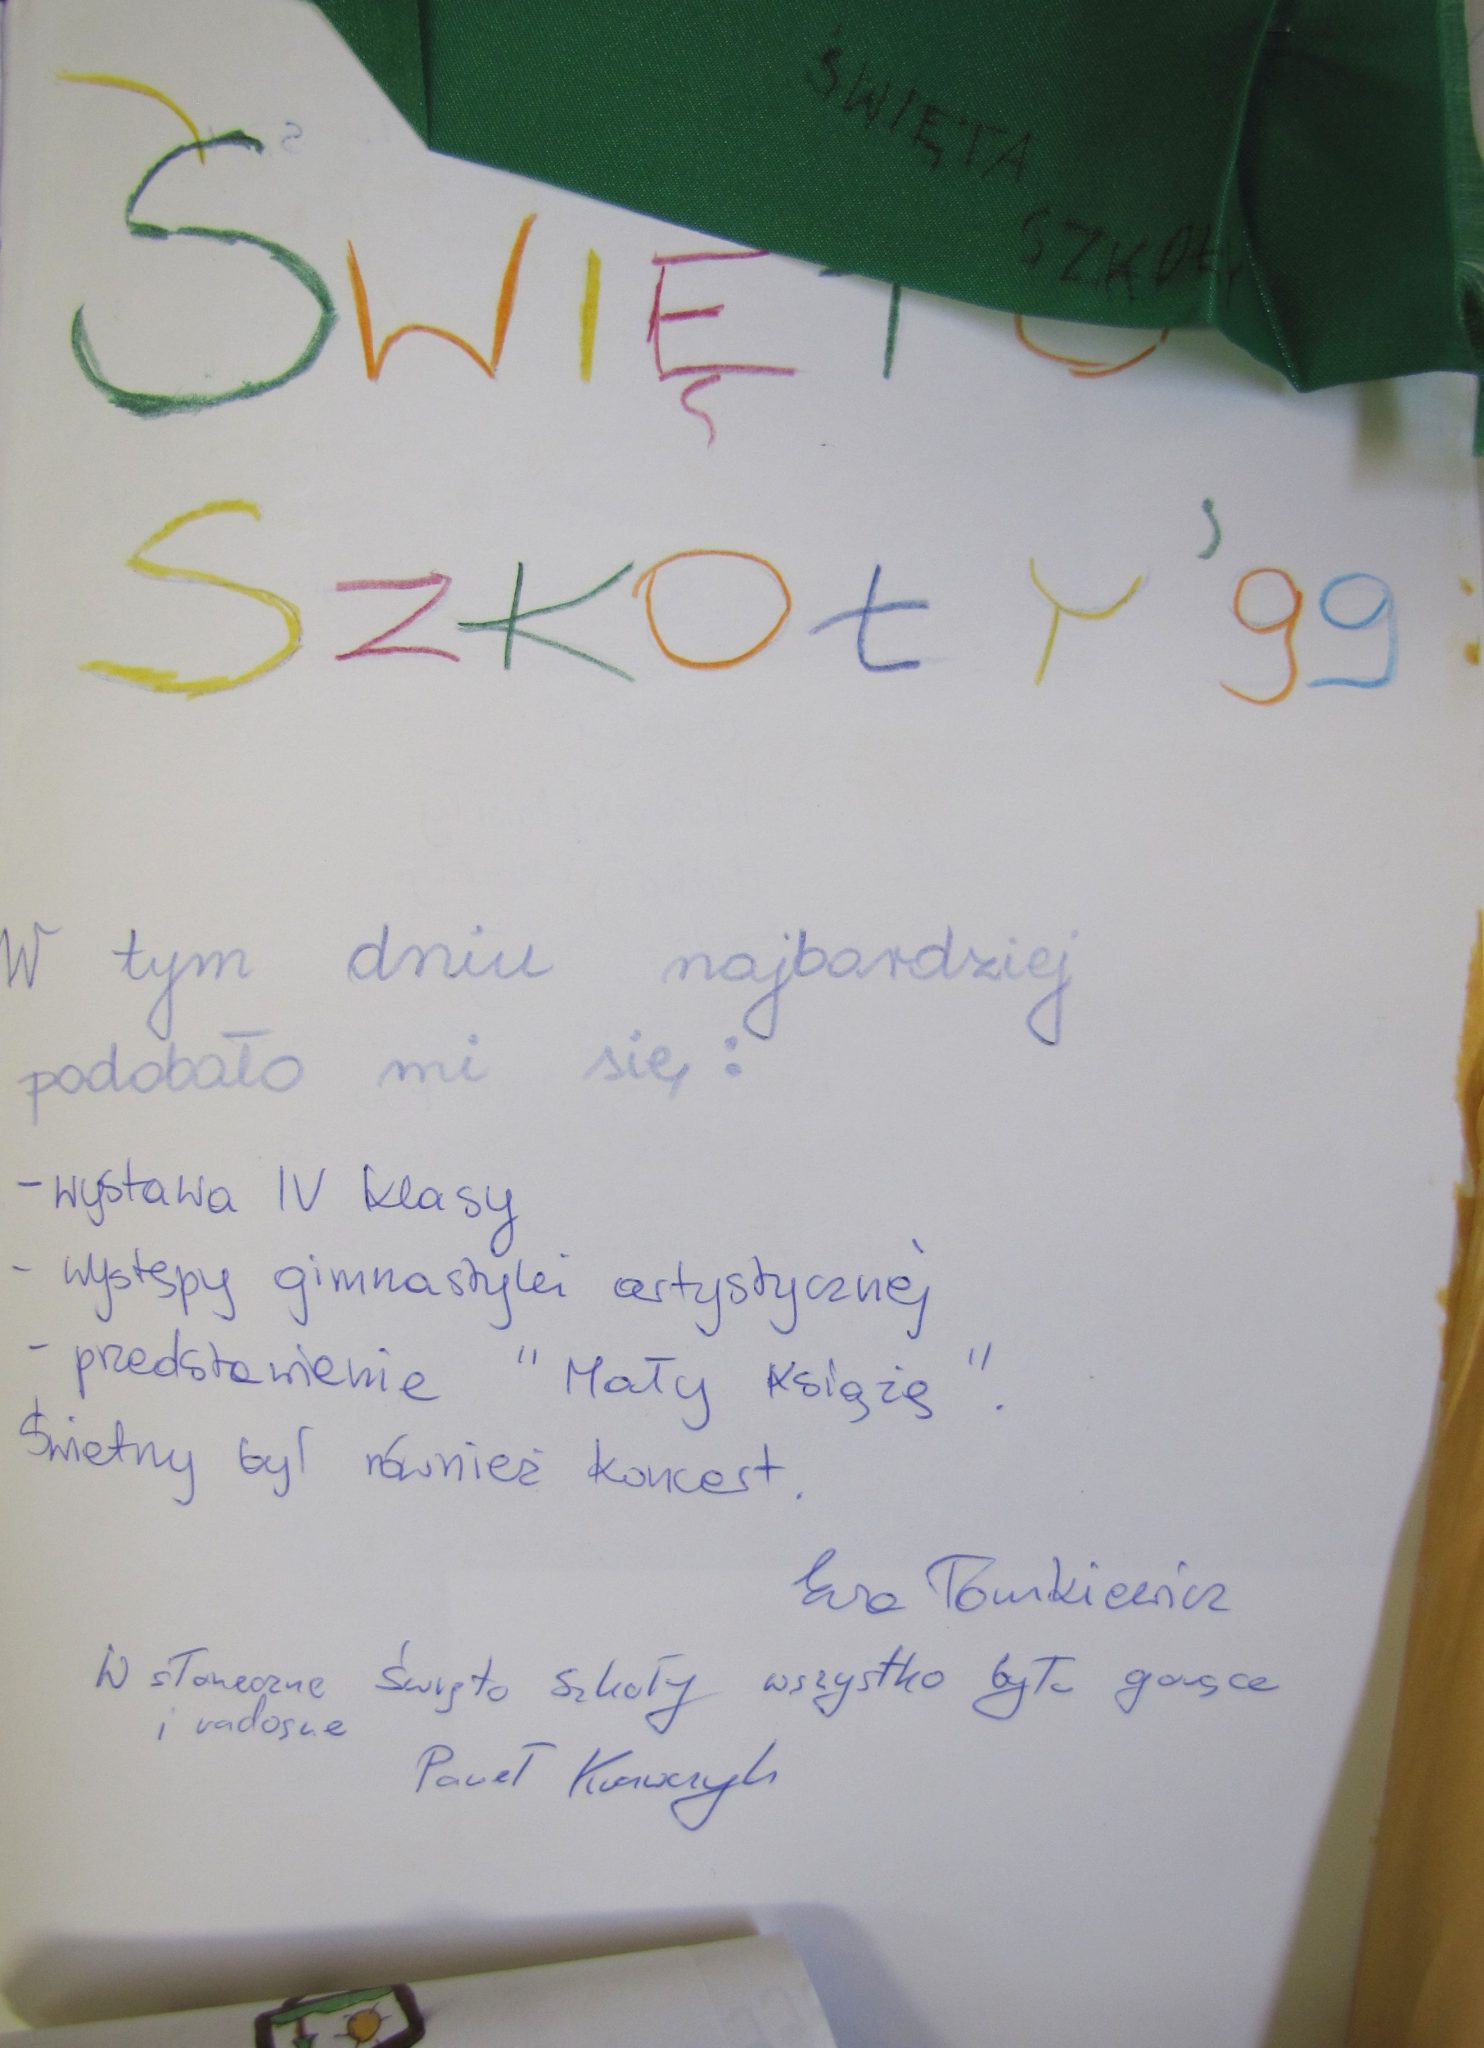 ŚWIĘTA
SZKOŁY
ŚWIĘTO
SZKOŁY '99
W tym dniu najbardziej
podobało mi się:
- wystawa IV klasy
- występy gimnastyki artystycznej
- przedstawienie "Mały Książę".
Świetny był również koncert.
Ewa Tomkiewicz
W słoneczne Święto Szkoły wszystko było gorące
i radosne
Paweł Krawczyk